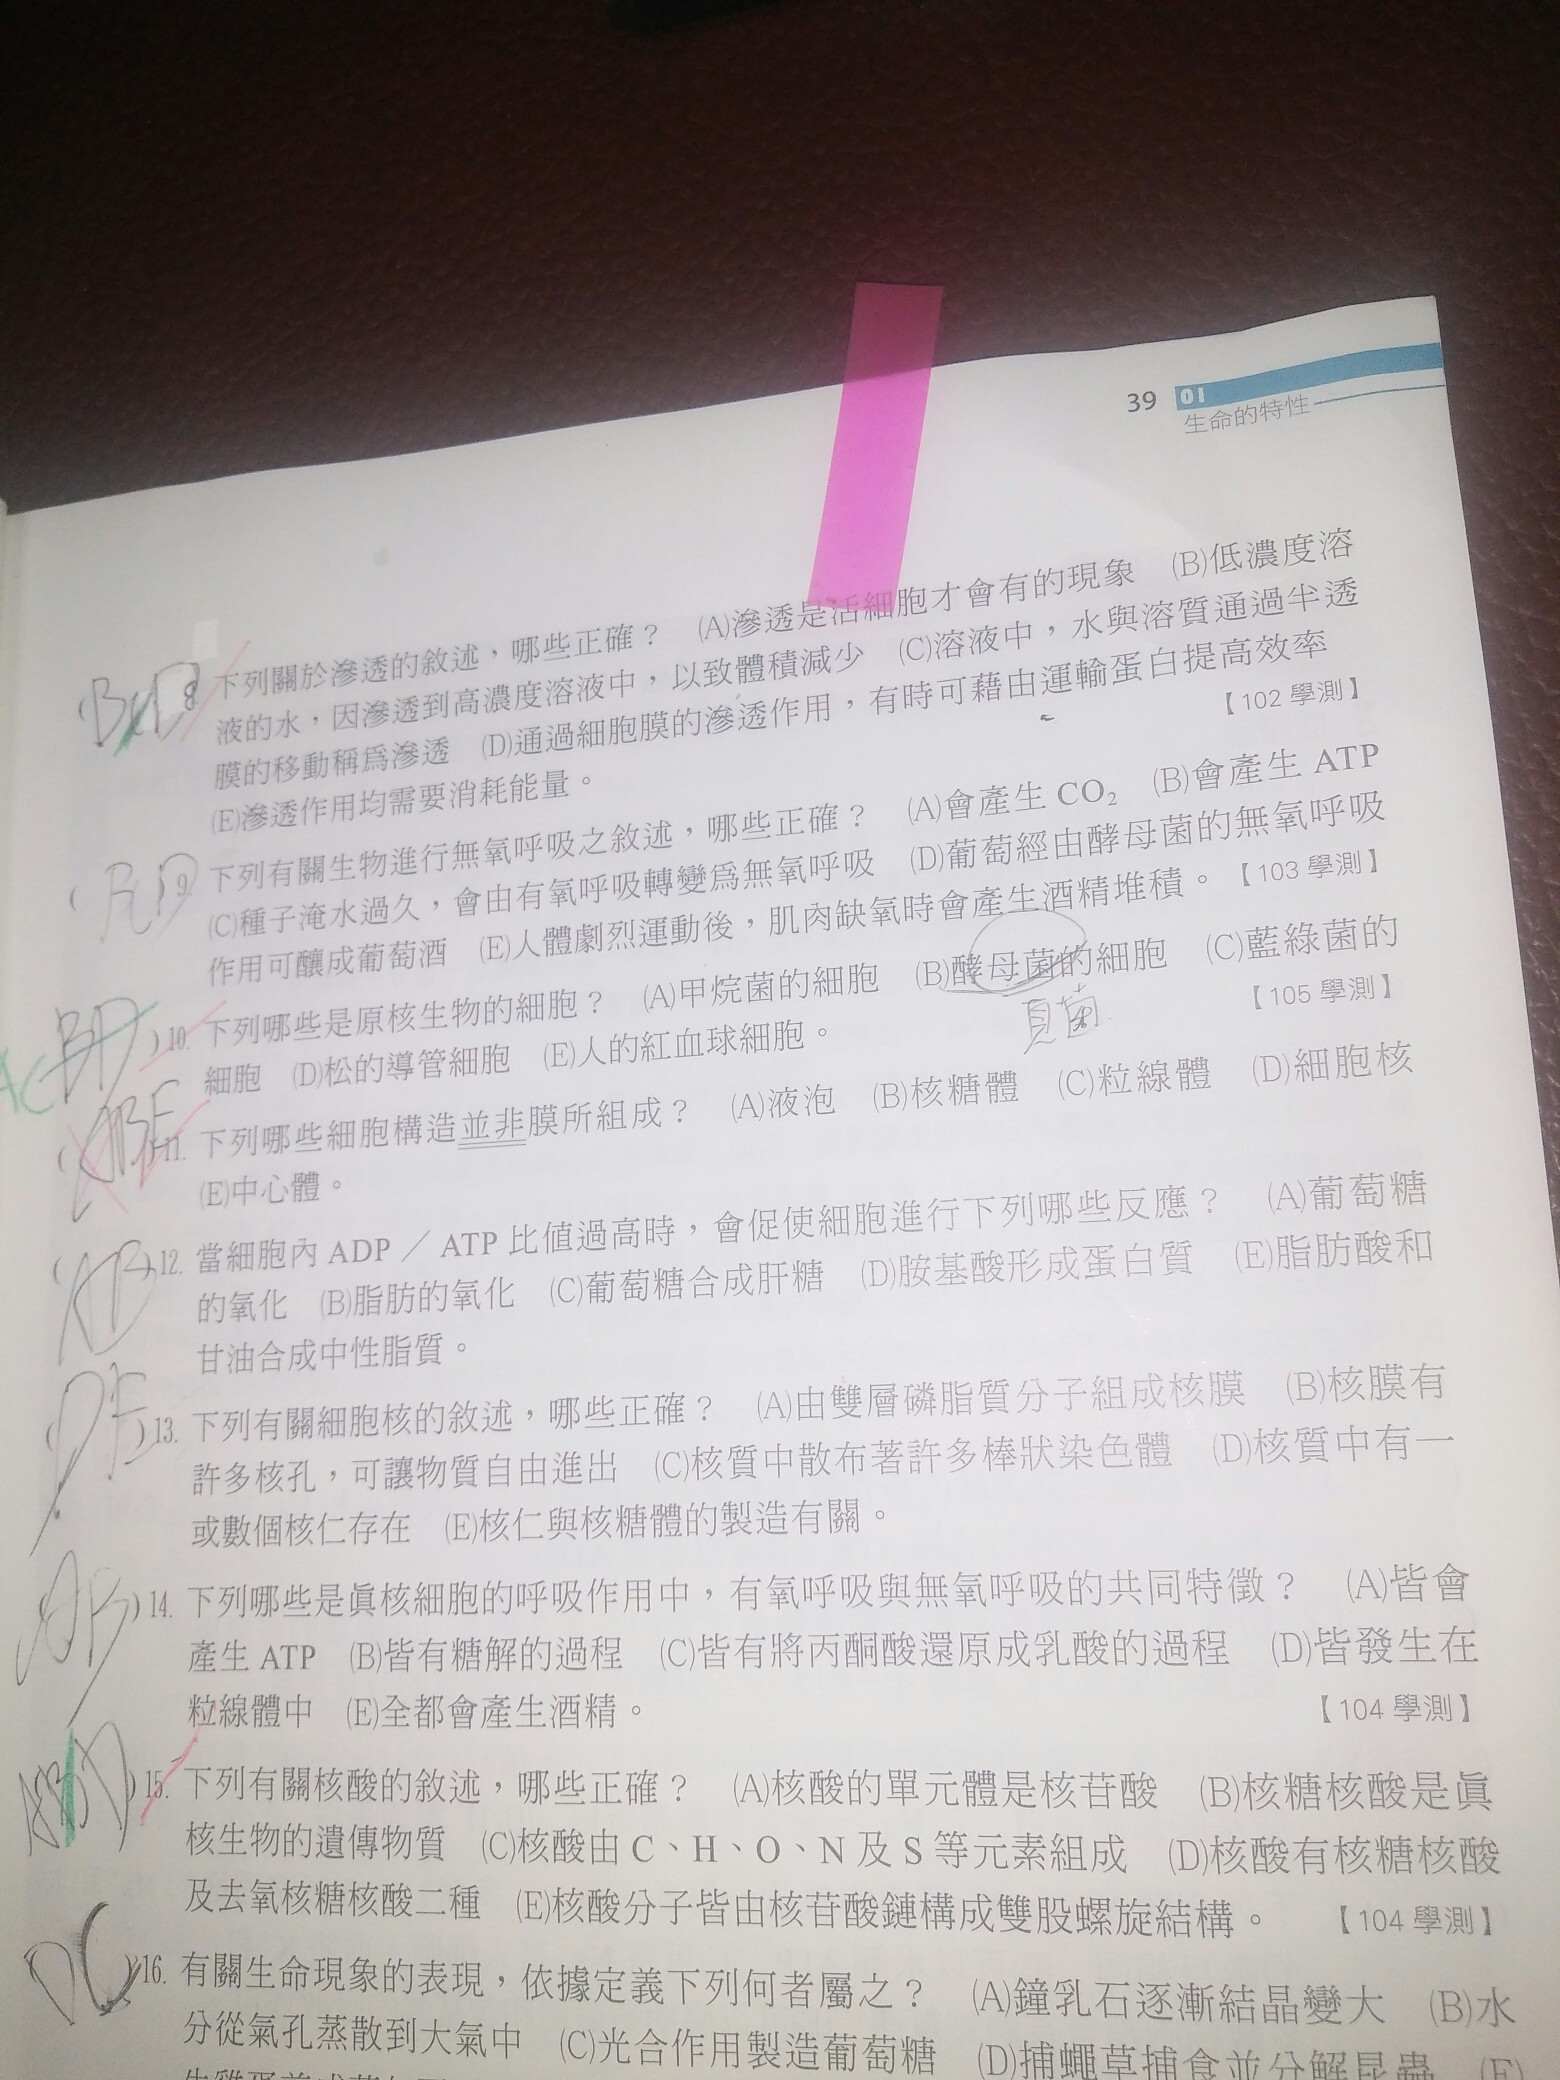 39 01
生命的特性
8. 下列關於滲透的敘述，哪些正確？ (A)滲透是活細胞才會有的現象 (B)低濃度溶
液的水，因滲透到高濃度溶液中，以致體積減少 (C)溶液中，水與溶質通過半透
膜的移動稱為滲透 (D)通過細胞膜的滲透作用，有時可藉由運輸蛋白提高效率
(E)滲透作用均需要消耗能量。 【102 學測】
9. 下列有關生物進行無氧呼吸之敘述，哪些正確？ (A)會產生 CO₂ (B)會產生 ATP
(C)種子淹水過久，會由有氧呼吸轉變爲無氧呼吸 (D)葡萄經由酵母菌的無氧呼吸
作用可釀成葡萄酒 (E)人體劇烈運動後，肌肉缺氧時會產生酒精堆積。【103 學測】
BD )10. 下列哪些是原核生物的細胞？ (A)甲烷菌的細胞 (B)酵母菌的細胞 (C)藍綠菌的
AC
細胞 (D)松的導管細胞 (E)人的紅血球細胞。 【105 學測】
11. 下列哪些細胞構造並非膜所組成？ (A)液泡 (B)核糖體 (C)粒線體 (D)細胞核
(E)中心體。
AB )12. 當細胞內 ADP／ATP 比值過高時，會促使細胞進行下列哪些反應？ (A)葡萄糖
的氧化 (B)脂肪的氧化 (C)葡萄糖合成肝糖 (D)胺基酸形成蛋白質 (E)脂肪酸和
甘油合成中性脂質。
DE )13. 下列有關細胞核的敘述，哪些正確？ (A)由雙層磷脂質分子組成核膜 (B)核膜有
許多核孔，可讓物質自由進出 (C)核質中散布著許多棒狀染色體 (D)核質中有一
或數個核仁存在 (E)核仁與核糖體的製造有關。
AB )14. 下列哪些是眞核細胞的呼吸作用中，有氧呼吸與無氧呼吸的共同特徵？ (A)皆會
產生 ATP (B)皆有糖解的過程 (C)皆有將丙酮酸還原成乳酸的過程 (D)皆發生在
粒線體中 (E)全都會產生酒精。 【104 學測】
ABD )15. 下列有關核酸的敘述，哪些正確？ (A)核酸的單元體是核苷酸 (B)核糖核酸是眞
核生物的遺傳物質 (C)核酸由 C、H、O、N 及 S 等元素組成 (D)核酸有核糖核酸
及去氧核糖核酸二種 (E)核酸分子皆由核苷酸鏈構成雙股螺旋結構。 【104 學測】
DC )16. 有關生命現象的表現，依據定義下列何者屬之？ (A)鐘乳石逐漸結晶變大 (B)水
分從氣孔蒸散到大氣中 (C)光合作用製造葡萄糖 (D)捕蠅草捕食並分解昆蟲 (E)